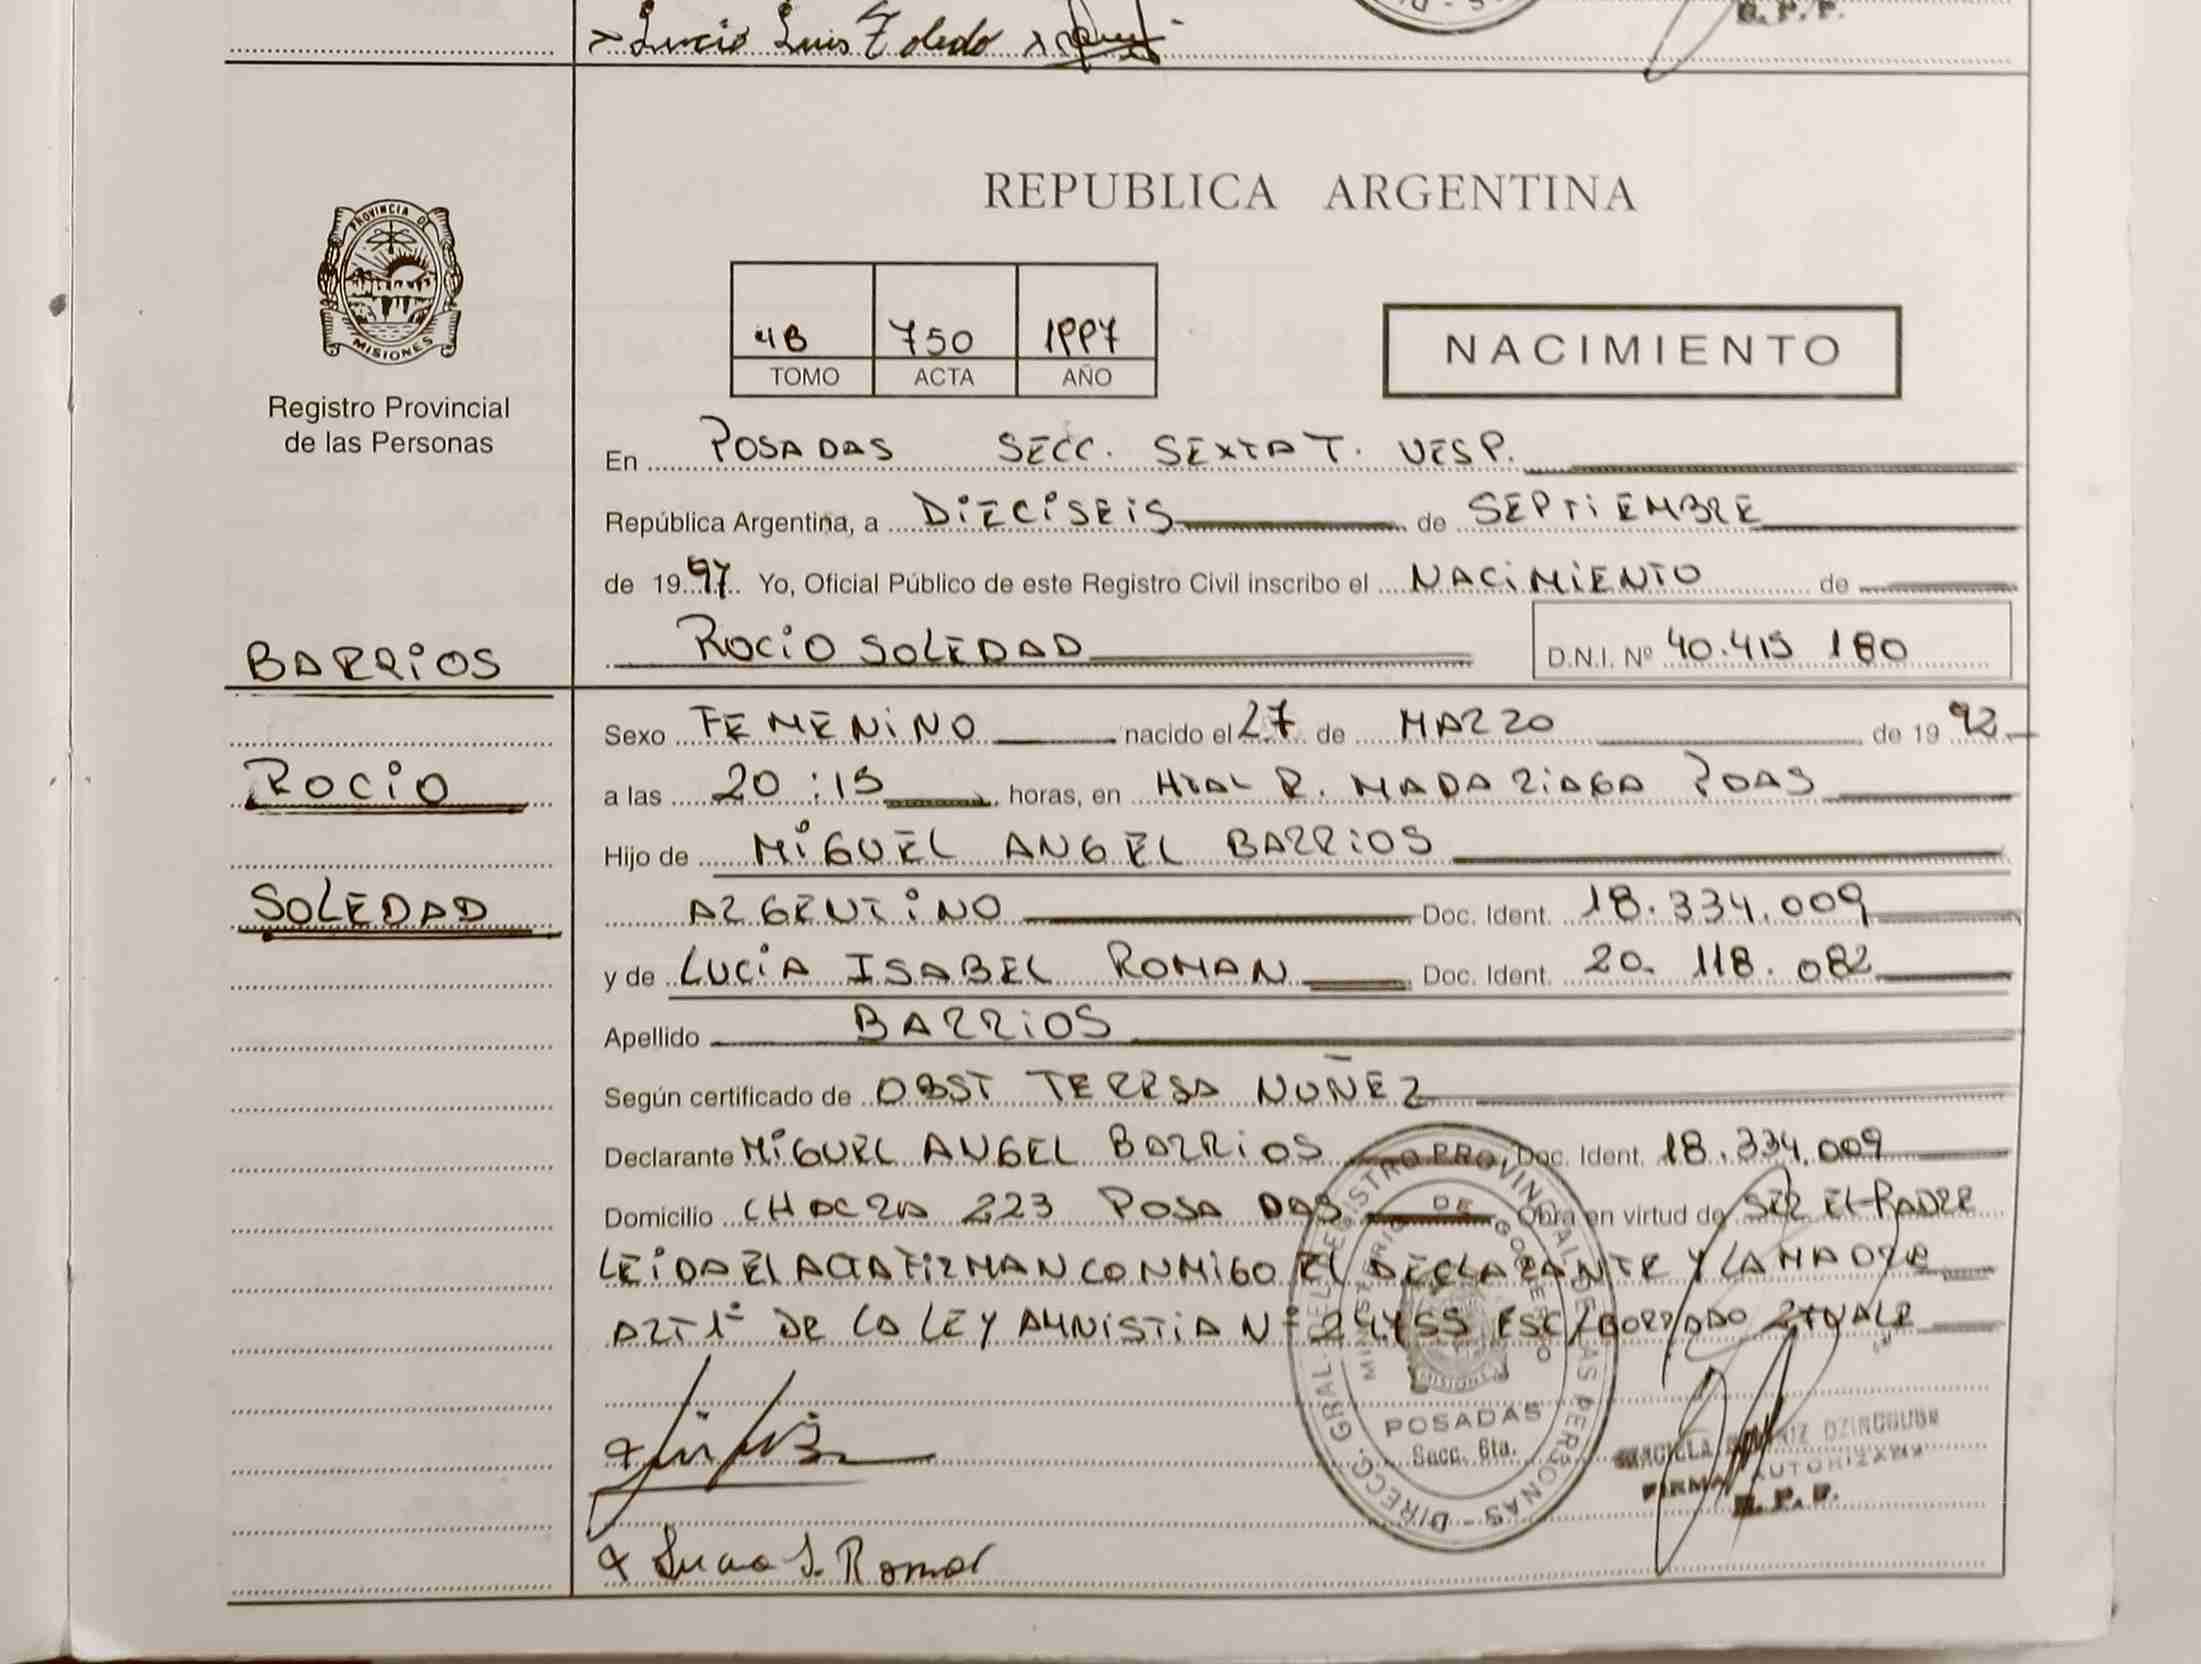 Lucio Luis Toledo
R. P. P.
PROVINCIA DE
MISIONES
Registro Provincial
de las Personas
REPUBLICA ARGENTINA
4B 750 1997
TOMO ACTA AÑO
NACIMIENTO
En POSADAS SECC. SEXTA T. VESP.
República Argentina, a DIECISEIS de SEPTIEMBRE
de 1997 Yo, Oficial Público de este Registro Civil inscribo el NACIMIENTO de
ROCIO SOLEDAD D.N.I. Nº 40.415 180
BARRIOS
ROCIO
SOLEDAD
Sexo FEMENINO nacido el 27 de MARZO de 1992
a las 20:15 horas, en HTAL R. MADARIAGA PDAS
Hijo de MIGUEL ANGEL BARRIOS
ARGENTINO Doc. Ident. 18.334.009
y de LUCIA ISABEL ROMAN Doc. Ident. 20.118.082
Apellido BARRIOS
Según certificado de OBST TERESA NUÑEZ
Declarante MIGUEL ANGEL BARRIOS Doc. Ident. 18.334.009
Domicilio CHACRA 223 POSADAS Obra en virtud de SER EL PADRE
LEIDA EL ACTA FIRMAN CONMIGO EL DECLARANTE Y LA MADRE
ART 1º DE LA LEY AMNISTIA Nº 24.455 ESC/BORRADO
DIRECC. GRAL. DEL REGISTRO PROVINCIAL DE LAS PERSONAS
MINISTERIO DE GOBIERNO
MISIONES
POSADAS
Secc. 6ta.
FIRMA AUTORIZADA
R. P. P.
Lucia I. Roman